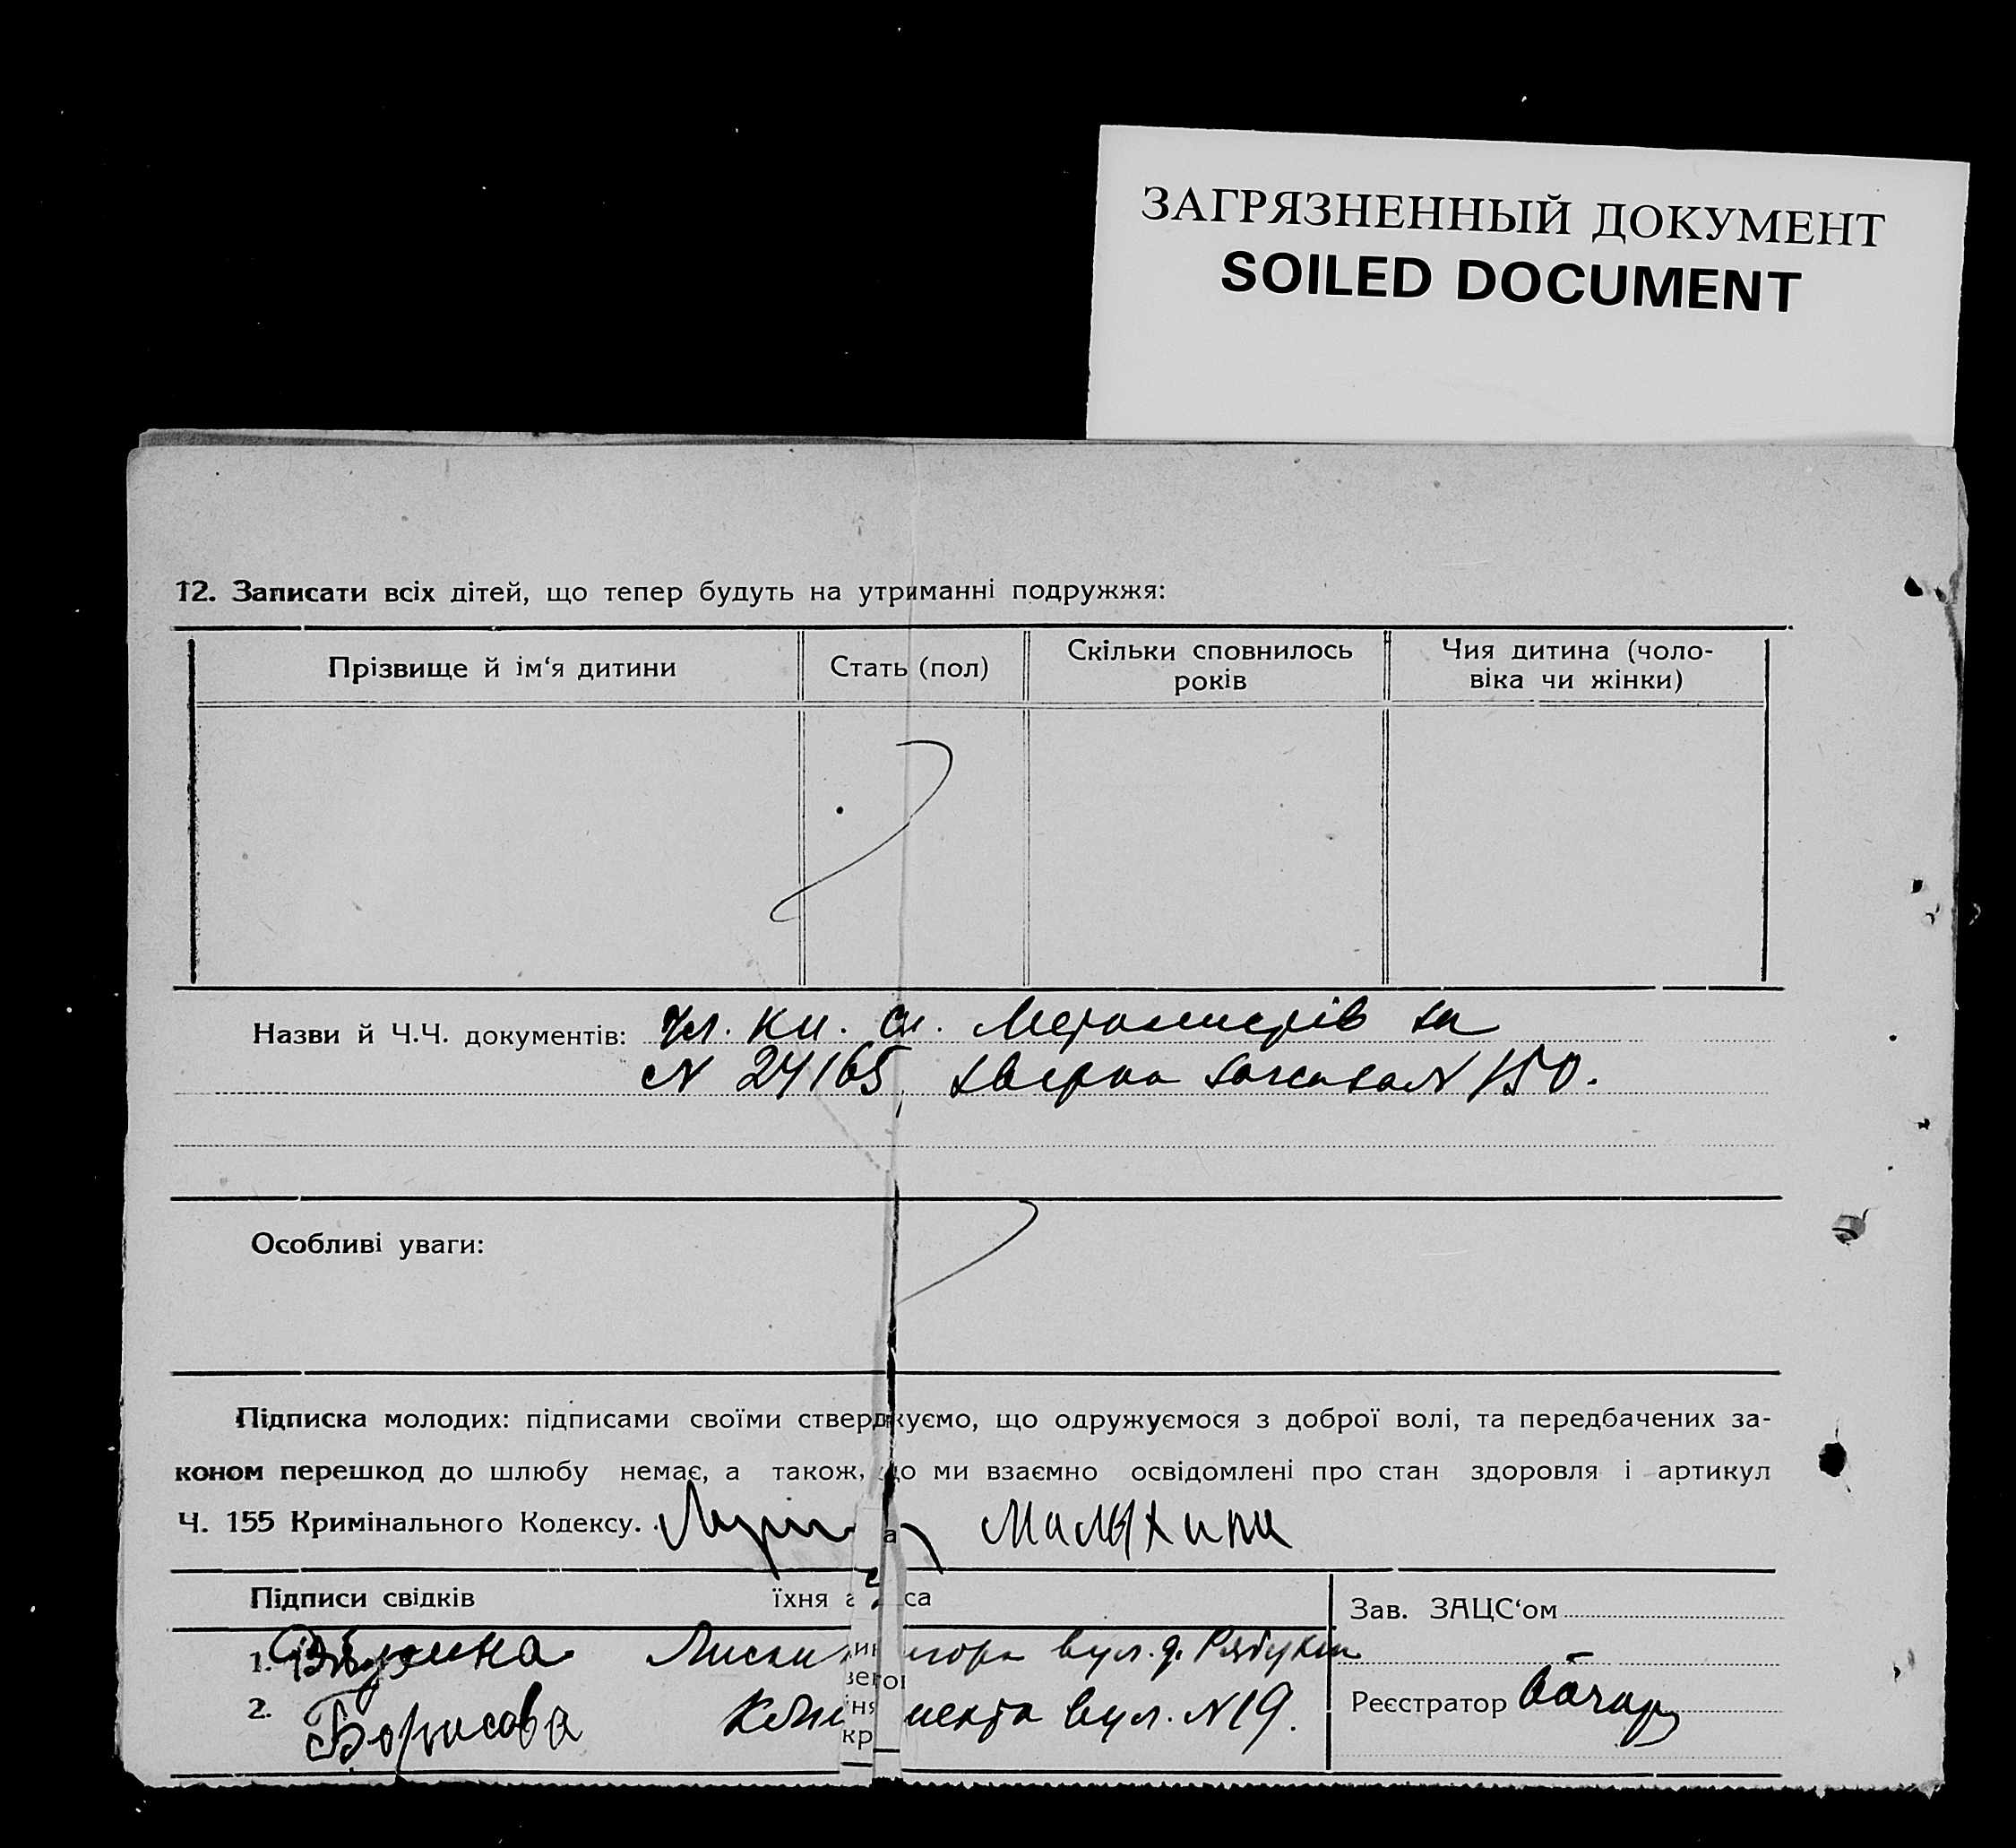 ЗАГРЯЗНЕННЫЙ ДОКУМЕНТ
SOILED DOCUMENT
12. Записати всіх дітей, що тепер будуть на утриманні подружжя:
Прізвище й ім‘я дитини
Стать (пол)
Скільки сповнилось
років
Чия дитина (чоло-
віка чи жінки)
Назви й Ч.Ч. документів: Чл. кн. сп. Металистів за
N 24165, N 150.
Особливі уваги:
Підписка молодих: підписами своїми стверджуємо, що одружуємося з доброї волі, та передбачених за-
коном перешкод до шлюбу немає, а також, що ми взаємно освідомлені про стан здоровля і артикул
Ч. 155 Кримінального Кодексу. Малыхина
Підписи свідків
їхня а са
Зав. ЗАЦС‘ом
1. Лиса гора вул. д.
2. Борисова вул. N 19.
Реєстратор